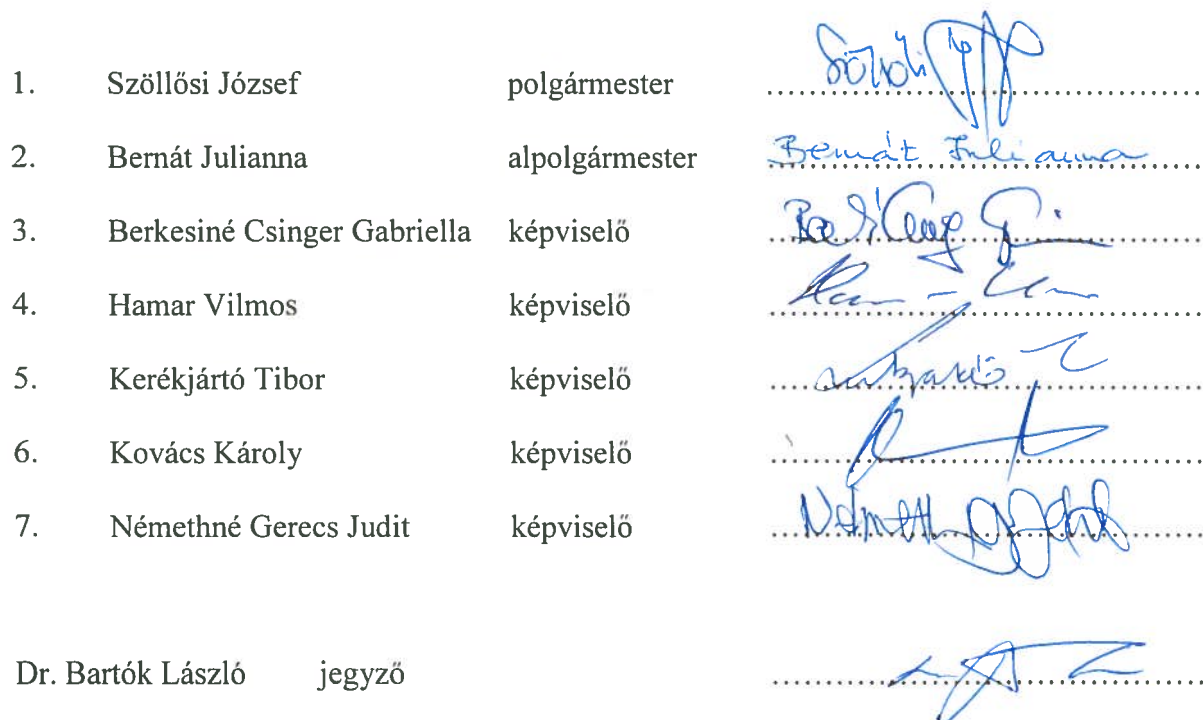 1. Szöllősi József polgármester Szöllősi
2. Bernát Julianna alpolgármester Bernát Julianna
3. Berkesiné Csinger Gabriella képviselő
4. Hamar Vilmos képviselő
5. Kerékjártó Tibor képviselő
6. Kovács Károly képviselő
7. Némethné Gerecs Judit képviselő
Dr. Bartók László jegyző